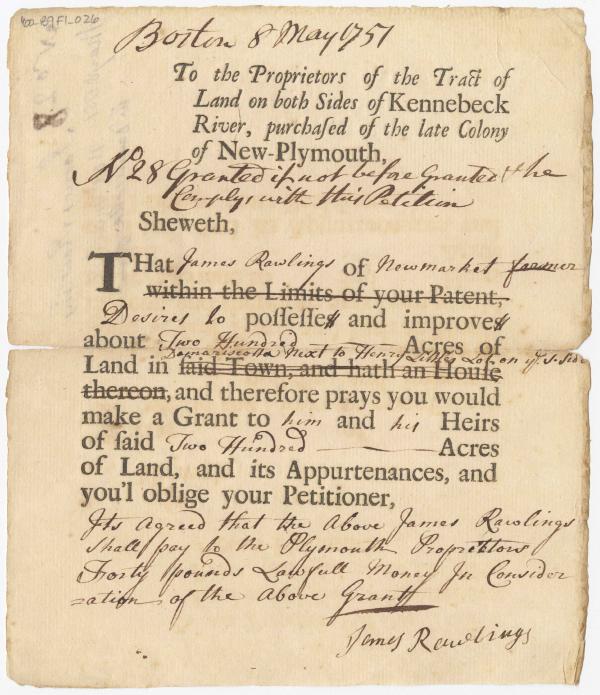 Boston 8 May 1751
To the Proprietors of the Tract of
Land on both Sides of Kennebeck
River, purchaſed of the late Colony
of New-Plymouth,
No 28 Granted if not before Granted & he
Comply with this Petition
Sheweth,
THat James Rawlings of Newmarket farmer
within the Limits of your Patent,
Desires to poſſeſſes and improves
about Two Hundred Acres of
Damariscotta Next to Henry Littles Lot on ye s. side
Land in ſaid Town, and hath an Houſe
thereon, and therefore prays you would
make a Grant to him and his Heirs
of ſaid Two Hundred Acres
of Land, and its Appurtenances, and
you'l oblige your Petitioner,
Its Agreed that the Above James Rawlings
shall pay to the Plymouth Proprietors
Forty pounds Lawfull Money In Consider
=ation of the above Grant
James Rawlings